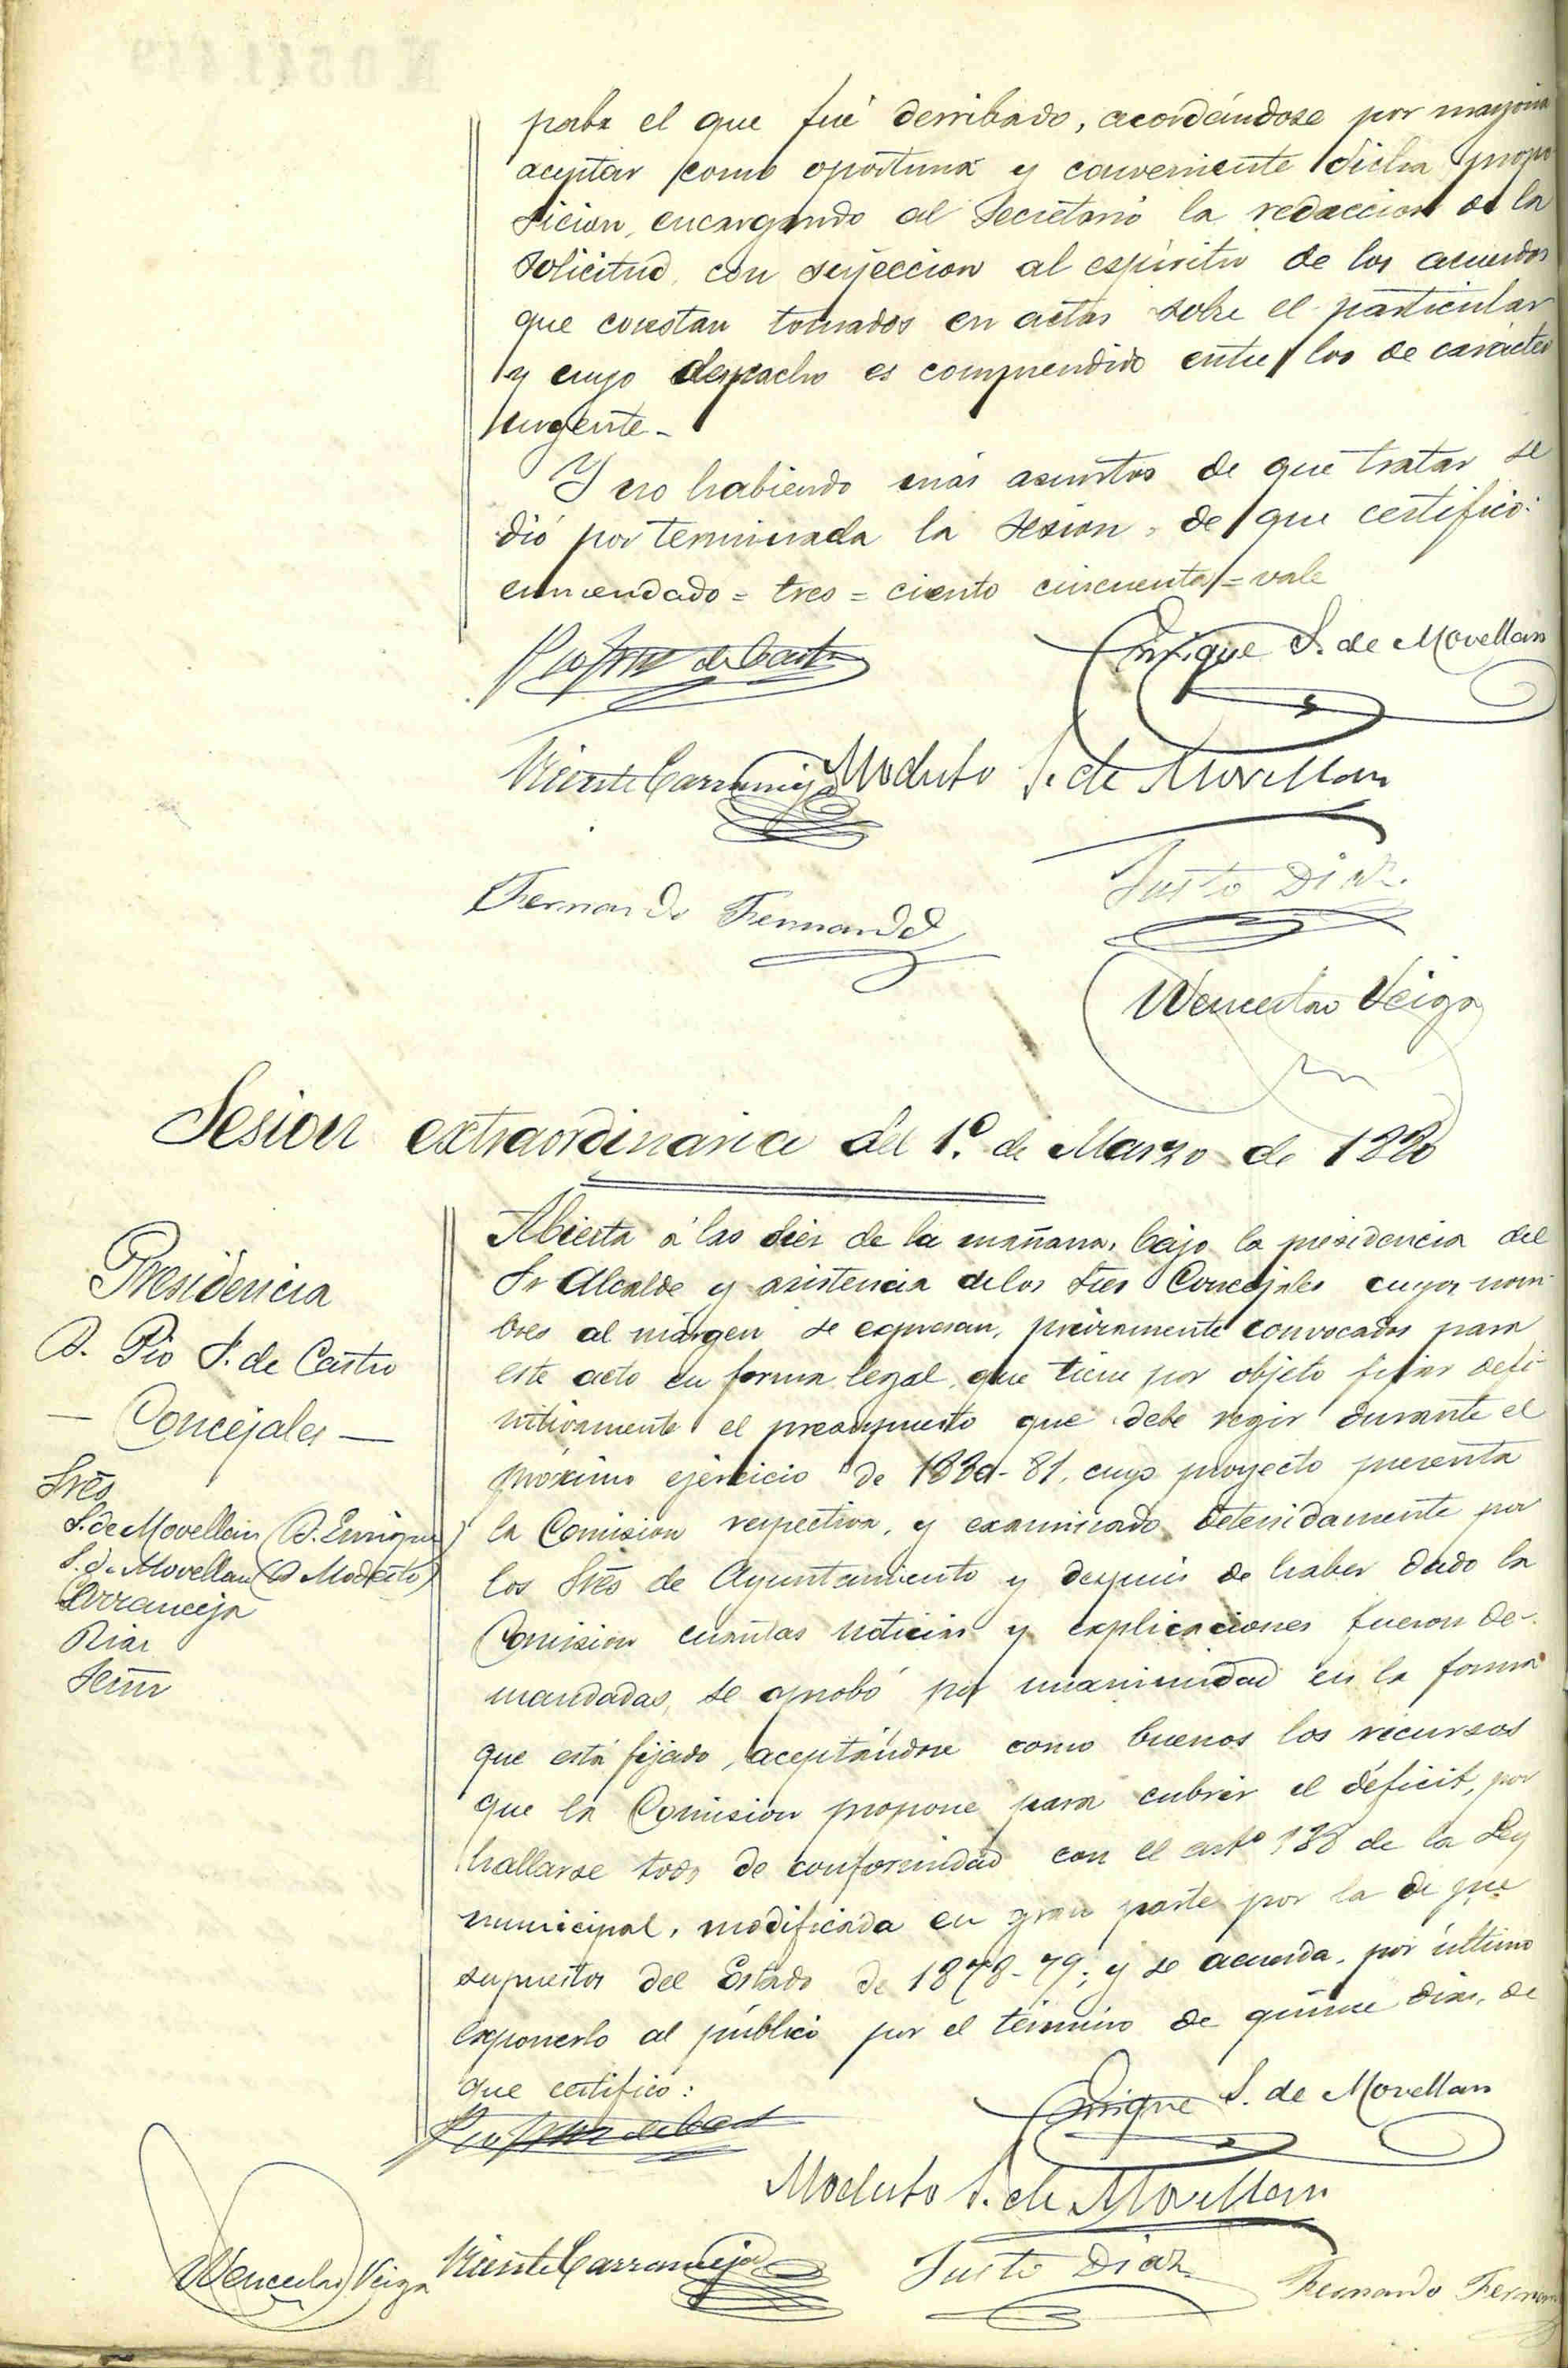 paba el que fué derribado, acordándose por mayoria
aceptar como oportuna y conveniente dicha propo
sicion, encargando al Secretario la redaccion de la
solicitud, con sujeccion al espíritu de los acuerdos
que constan tomados en actas sobre el particular
y cuyo despacho es comprendido entre los de carácter
urgente-
Y no habiendo más asuntos de que tratar se
dió por terminada la sesion, de que certifico:
enmendado = tres = ciento cincuenta = vale
Pio de Castro
Enrique S. de Movellan
Vicente Carranceja
Modesto S. de Movellan
Fernando Fernandez
Justo Diaz
Wenceslao Veiga
Sesion extraordinaria del 1º. de Marzo de 1880
Presidencia
D. Pio S. de Castro
- Concejales -
Sres
S. de Movellan (D. Enrique)
S. de Movellan (D Modesto)
Carranceja
Diaz
Abierta á las diez de la mañana, bajo la presidencia del
Sr Alcalde y asistencia de los Sres Concejales cuyos nom-
bres al márgen se expresan, préviamente convocados para
este acto en forma legal, que tiene por objeto fijar defi-
nitivamente el presupuesto que debe regir durante el
próximo ejercicio de 1880-81, cuyo proyecto presenta
la Comision respectiva, y examinado detenidamente por
los Sres de Ayuntamiento y despues de haber dado la
Comision cuantas noticias y explicaciones fueron de-
mandadas, se aprobó por unanimidad en la forma
que está fijado, aceptándose como buenos los recursos
que la Comision propone para cubrir el déficit, por
hallarse todo de conformidad con el artº 138 de la Ley
municipal, modificada en gran parte por la de pre
supuestos del Estado de 1878-79; y se acuerda, por último
exponerlo al público por el término de quince dias, de
que certifico:
Pio de Castro
Enrique S. de Movellan
Modesto S. de Movellan
Wenceslao Veiga
Vicente Carranceja
Justo Diaz
Fernando Fernan